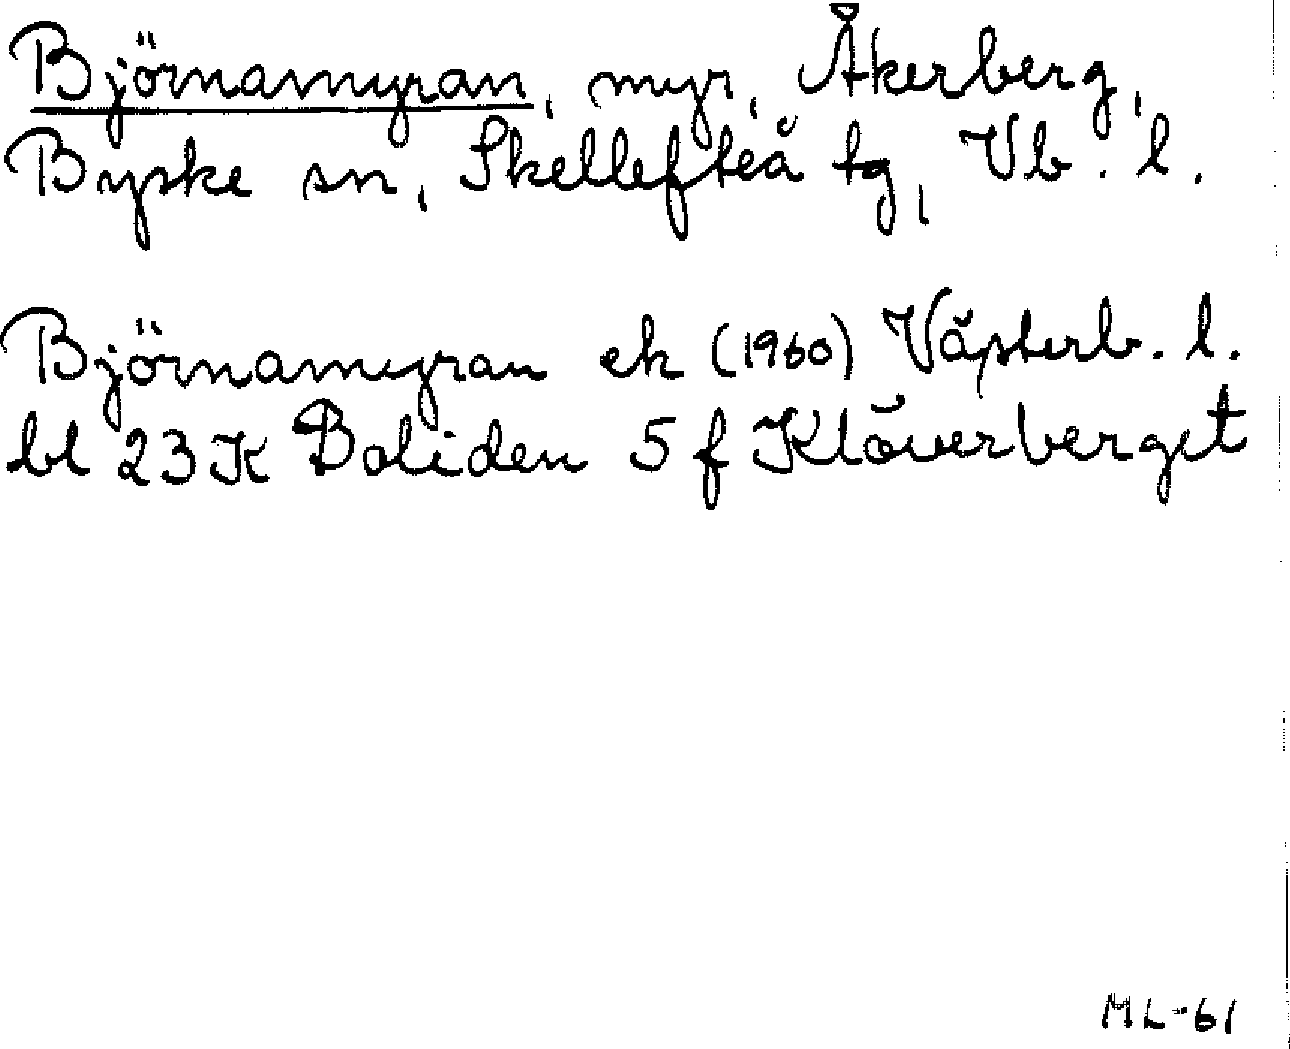 Björnamyran, myr, Åkerberg,
Byske sn, Skellefteå tg, Vb. l.
Björnamyran ek (1960) Västerb. l.
bl 23 K Boliden 5 f Klöverberget
ML-61